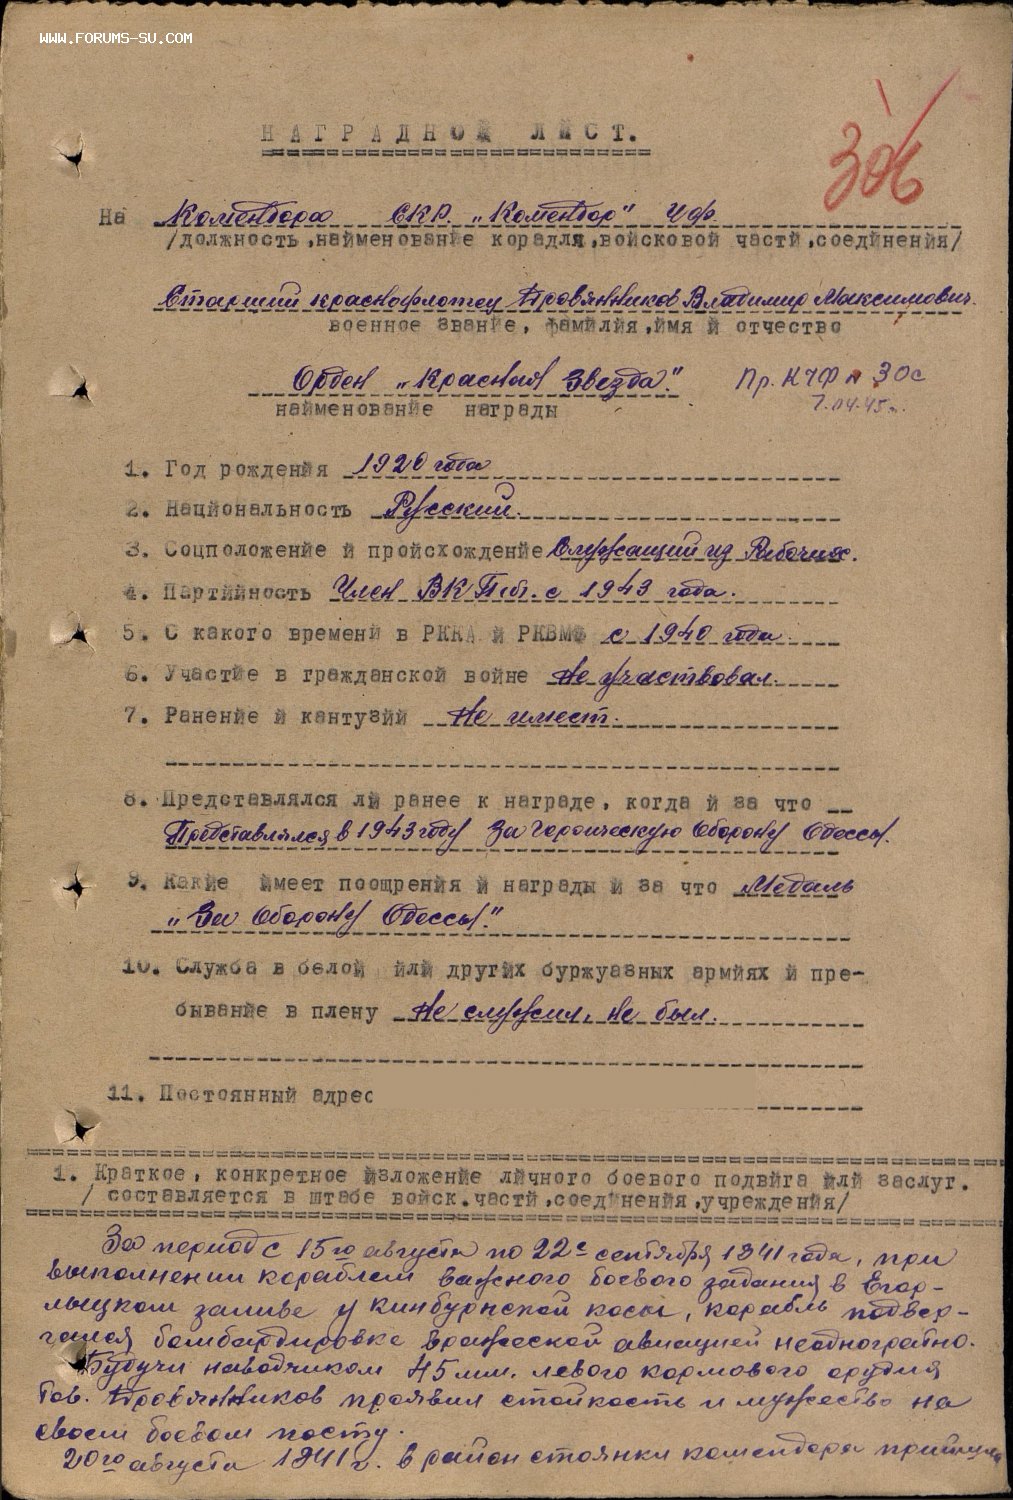 WWW.FORUMS-SU.COM
НАГРАДНОЙ ЛИСТ.
306
На Комендора СКР. „Комендор" ЧФ
/должность,найменованйе корадля,войсковой частй,соедйненйя/
Старший краснофлотец Провянников Владимир Максимович.
военное званйе, фамйлйя,ймя й отчество
Орден „Красная Звезда". Пр. КЧФ № 30с
найменованйе награды 7.04.45г.
1. Год рожденйя 1920 года
2. Нацйональность Русский.
3. Соцположенйе й пройсхожденйе Служащий из Рабочих.
4. Партййность Член ВКП/б/. с 1943 года.
5. С какого временй в РККА й РКВМФ с 1940 года.
6. Участйе в гражданской войне Не участвовал.
7. Раненйе й кантузйй Не имеет.
8. Представлялся лй ранее к награде, когда й за что
Представлялся в 1943 году за героическую оборону Одессы.
9. Какйе ймеет поощрения й награды й за что Медаль
„За оборону Одессы".
10. Служба в белой йлй другйх буржуазных армйях й пре-
быванйе в плену Не служил, не был.
11. Постоянный адрес
1. Краткое, конкретное йзложенйе лйчного боевого подвйга йлй заслуг.
/ составляется в штабе войск.частй,соедйненйя,учрежденйя/
За период с 15го августа по 22е сентября 1941 года, при
выполнении кораблем важного боевого задания в Егор-
лыцком заливе у Кинбурнской косы, корабль подвер-
гался бомбардировке вражеской авиацией неоднократно.
Будучи наводчиком 45 мм. левого кормового орудия
тов. Провянников проявил стойкость и мужество на
своем боевом посту.
20го августа 1941 г. в район стоянки комендора